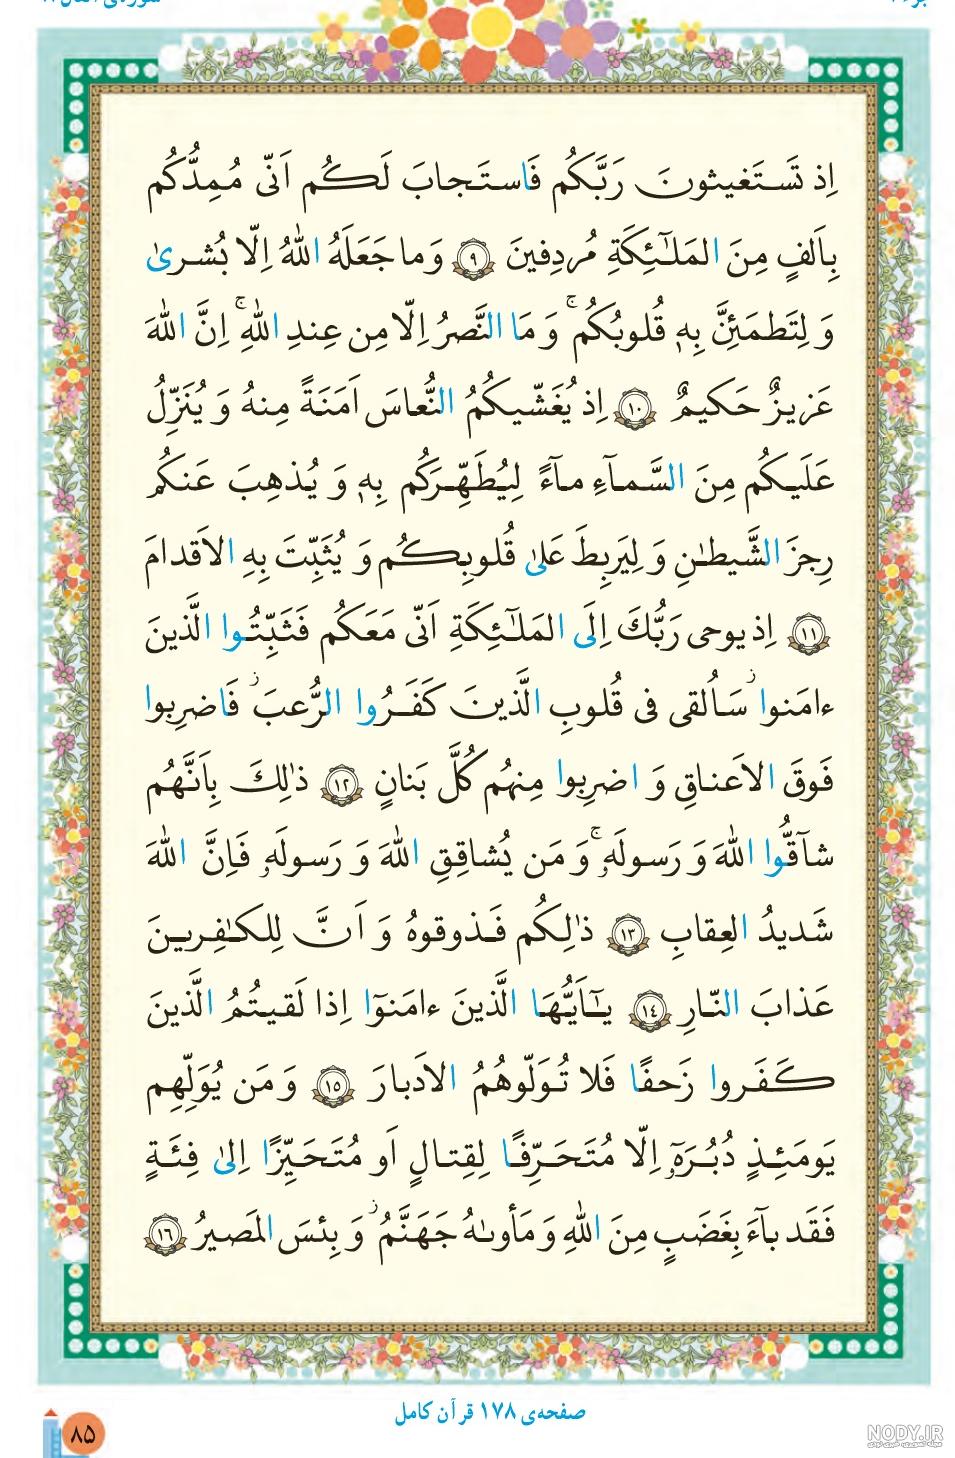 اِذ تَسـتَغيثونَ رَبَّكُم فَاستَجابَ لَكُم اَنّی مُمِدُّكُم
بِاَلفٍ مِنَ المَلـٰٓئِكَةِ مُردِفينَ ﴿٩﴾ وَ ما جَعَلَهُ اللهُ اِلّا بُشریٰ
وَ لِتَطمَئِنَّ بِهٖ قُلوبُكُم ۚ وَ مَا النَّصرُ اِلّا مِن عِندِ اللهِ ۚ اِنَّ اللهَ
عَزيزٌ حَكيمٌ ﴿١٠﴾ اِذ يُغَشّيكُمُ النُّعاسَ اَمَنَةً مِنهُ وَ يُنَزِّلُ
عَلَيكُم مِنَ السَّماۤءِ ماۤءً لِيُطَهِّرَكُم بِهٖ وَ يُذهِبَ عَنكُم
رِجزَ الشَّيطٰنِ وَ لِيَربِطَ عَلیٰ قُلوبِكُم وَ يُثَبِّتَ بِهِ الاَقدامَ
﴿١١﴾ اِذ يوحی رَبُّكَ اِلَی المَلـٰٓئِكَةِ اَنّی مَعَكُم فَثَبِّتُوا الَّذينَ
ءامَنوا ۚ سَاُلقی فی قُلوبِ الَّذينَ كَفَرُوا الرُّعبَ فَاضرِبوا
فَوقَ الاَعناقِ وَ اضرِبوا مِنهُم كُلَّ بَنانٍ ﴿١٢﴾ ذٰلِكَ بِاَنَّهُم
شاۤقُّوا اللهَ وَ رَسولَهٗ ۚ وَ مَن يُشاقِقِ اللهَ وَ رَسولَهٗ فَاِنَّ اللهَ
شَديدُ العِقابِ ﴿١٣﴾ ذٰلِكُم فَذوقوهُ وَ اَنَّ لِلكـٰفِرينَ
عَذابَ النّارِ ﴿١٤﴾ يـٰٓاَيُّهَا الَّذينَ ءامَنوۤا اِذا لَقيتُمُ الَّذينَ
كَفَروا زَحفًا فَلا تُوَلّوهُمُ الاَدبارَ ﴿١٥﴾ وَ مَن يُوَلِّهِم
يَومَئِذٍ دُبُرَهٗۤ اِلّا مُتَحَرِّفًا لِقِتالٍ اَو مُتَحَيِّزًا اِلیٰ فِئَةٍ
فَقَد باۤءَ بِغَضَبٍ مِنَ اللهِ وَ مَأوىٰهُ جَهَنَّمُ ۖ وَ بِئسَ المَصيرُ ﴿١٦﴾
صفحه‌ی ۱۷۸ قرآن کامل
۸۵
NODY.IR